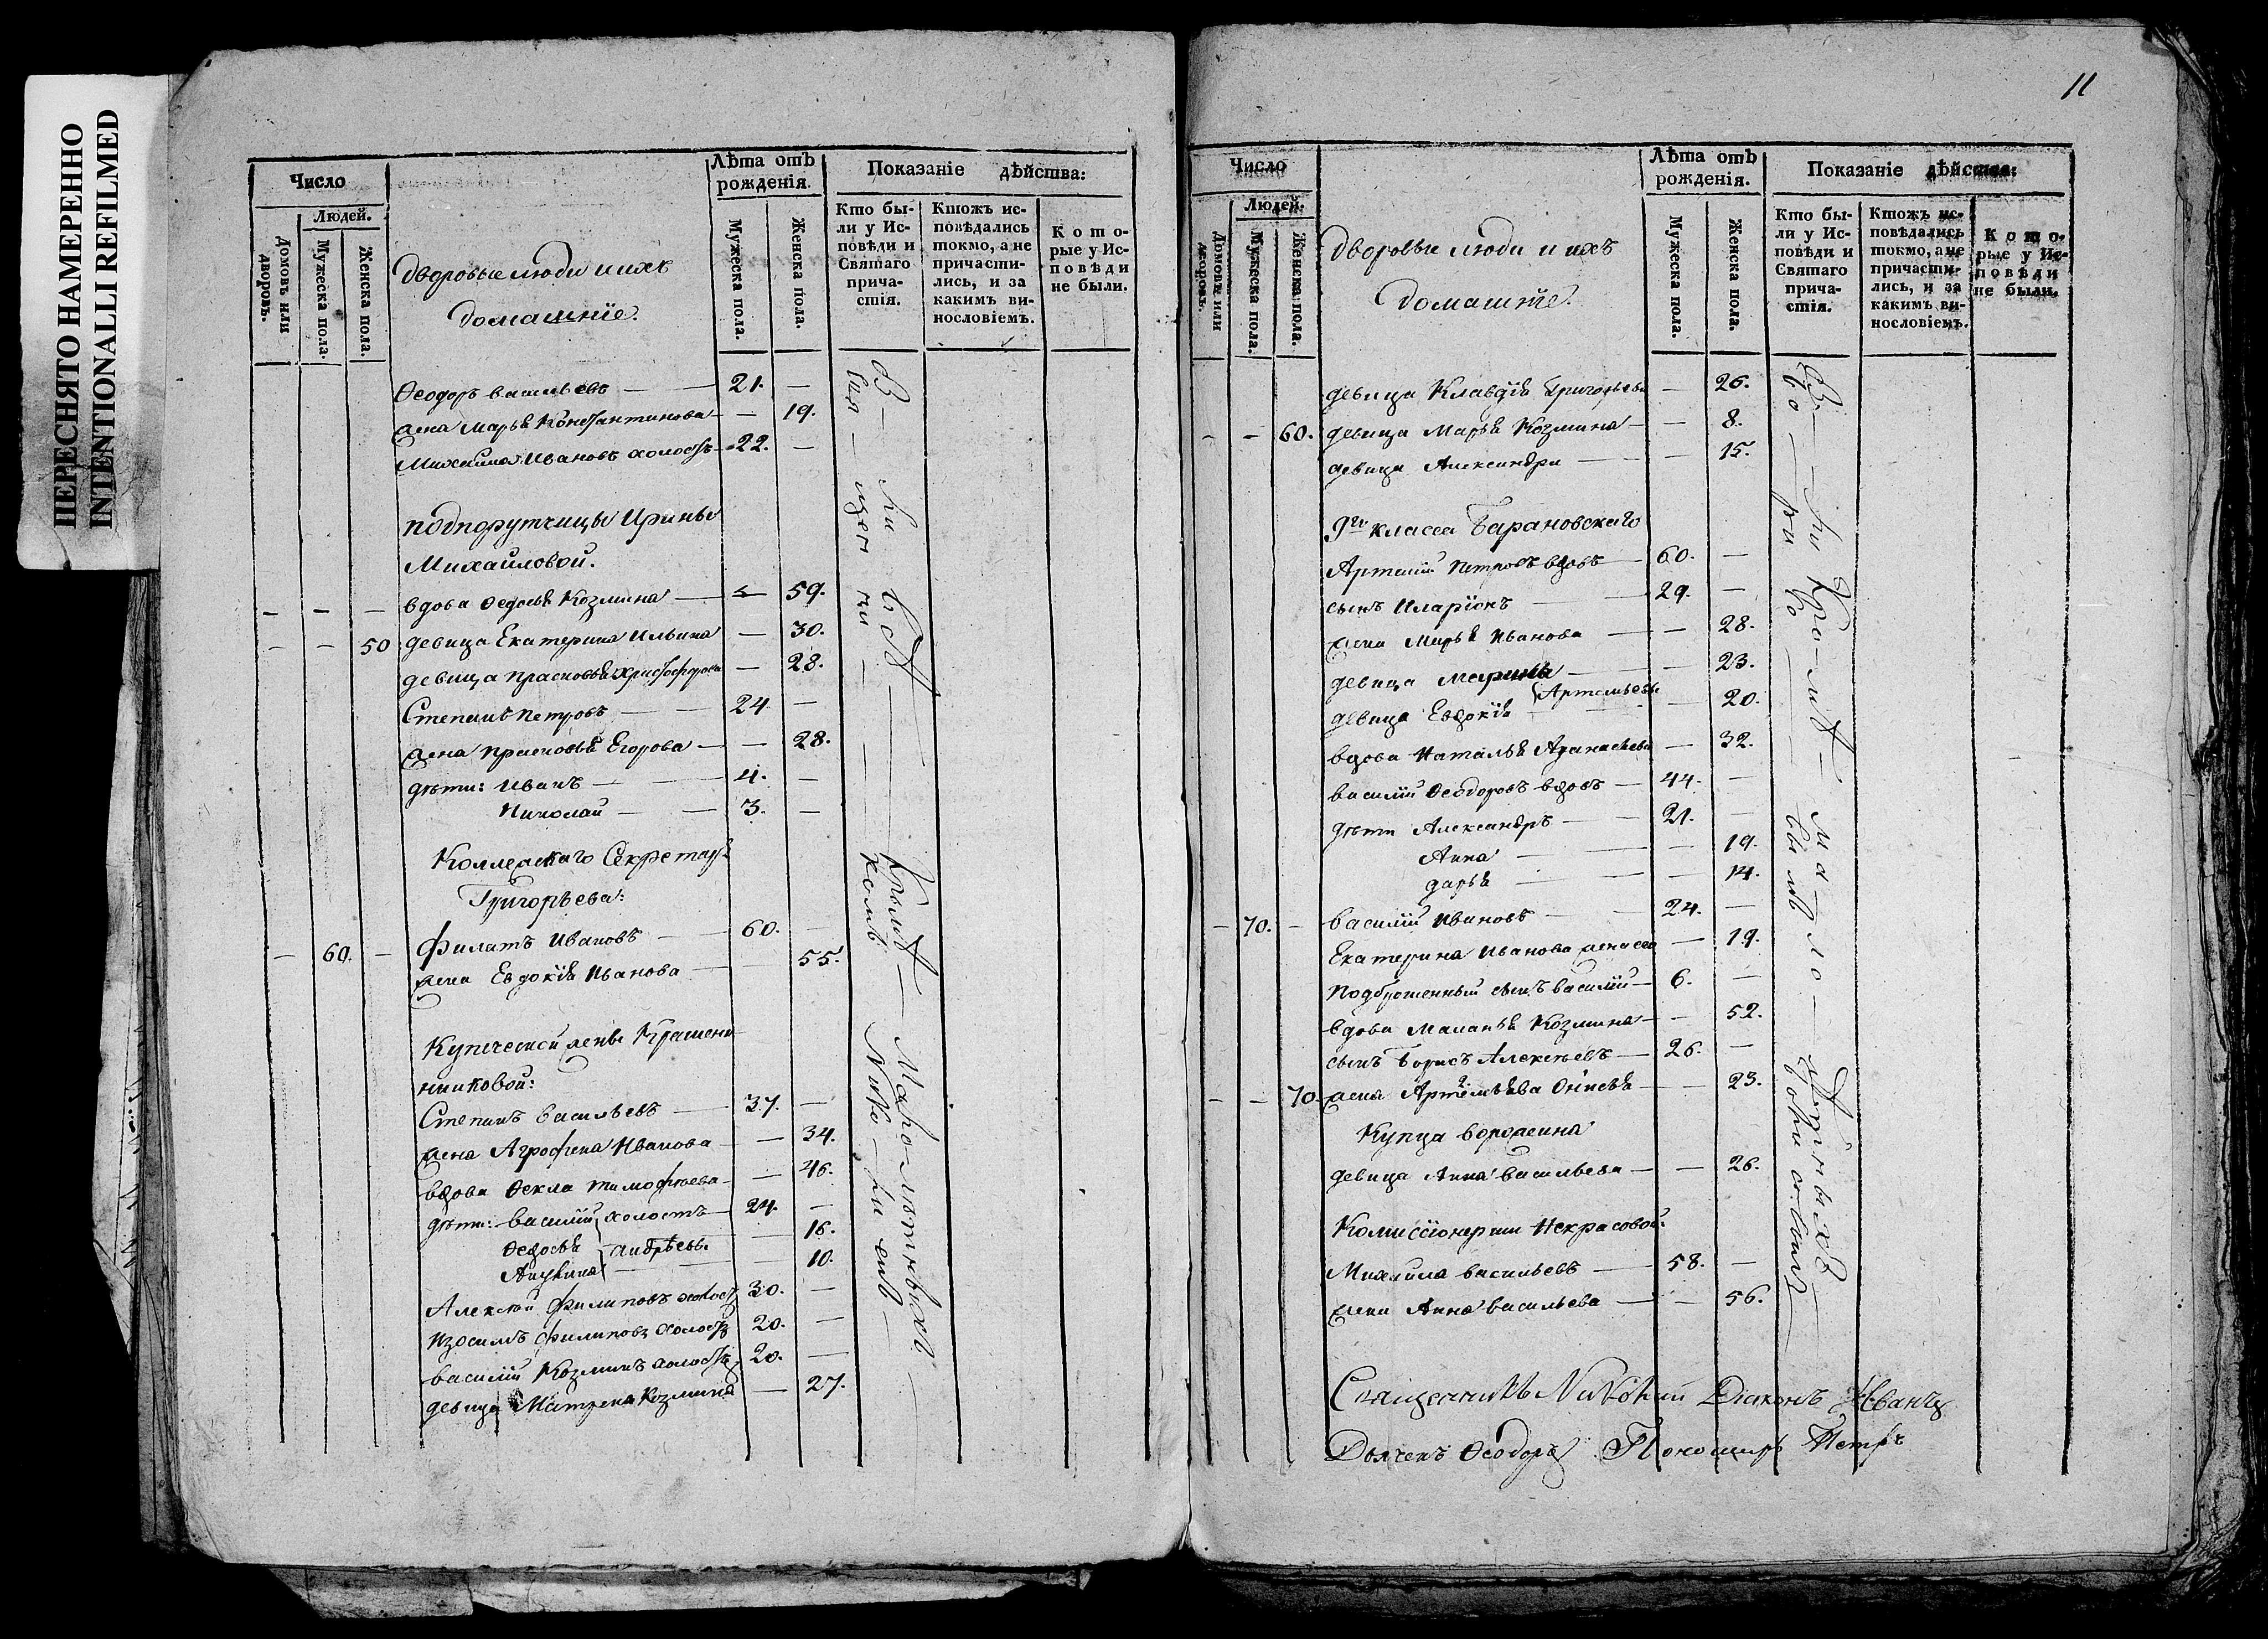 ПЕРЕСНЯТО НАМЕРЕННО
INTENTIONALLI REFILMED
Число
Людей.
Домовъ или дворовъ.
Мужеска пола.
Женска пола.
Дворовые люди и ихъ
домашнїе.
Лѣта отъ рожденїя.
Мужеска пола.
Женска пола.
Показанїе дѣйства:
Кто были у Исповѣди и Святаго причастїя.
Ктожъ исповѣдались токмо, а не причастились, и за какимъ винословїемъ.
Которые у Исповѣди не были.
Ѳеодоръ васильевъ — 21. —
жена Марья Константинова — — 19.
Михайла Ивановъ холостъ — 22. —
подпорутчицы Ирины
Михайловой.
— — — вдова Ѳедосья Козмина — — 59.
— — 50 девица Екатерина Ильина — 30.
девица прасковья Христофорова — 28.
Степанъ петровъ — 24 —
жена прасковья Егорова — — 28.
дѣти: Иванъ — 4. —
Николай — 3. —
Коллежскаго Секретаря
Григорьева:
— 60. — Филатъ Ивановъ — 60. —
жена Евдокїя Иванова — 55.
Купеческой жены Крашени-
нниковой:
Степанъ васильевъ — 37. —
жена Агрофена Иванова — — 34.
вдова Ѳекла тимофѣева — — 46.
дѣти: василїй холостъ — 24. —
Ѳедосья андрѣевы — 16.
— 10.
Алексѣй филиповъ холостъ 30. —
Изосимъ филиповъ холостъ 20. —
василїй Козминъ холостъ 20. —
девица Матрена Козмина — 27.
11
Число
Людей.
Домовъ или дворовъ.
Мужеска пола.
Женска пола.
Дворовые люди и ихъ
домашнїе.
Лѣта отъ рожденїя.
Мужеска пола.
Женска пола.
Показанїе дѣйства:
Кто были у Исповѣди и Святаго причастїя.
Ктожъ исповѣдались токмо, а не причастились, и за какимъ винословїемъ.
Которые у Исповѣди не были.
девица Клавдїя Григорьева — 26.
— — 60. девица Марья Козмина — — 8.
девица Александра — — 15.
9го класса Барановскаго
Артемїй Петровъ вдовъ — 60. —
сынъ Иларїонъ — 29. —
жена Марья Иванова — — 28.
девица Марина — — 23.
девица Евдокїя Артемьевы — 20.
вдова Наталья Афанасьева — 32.
василїй Ѳеодоровъ вдовъ — 44. —
дѣти Александръ — 21. —
Анна — — 19.
дарья — — 14.
— 70. — василїй Ивановъ — 24. —
Екатерина Иванова жена его — 19.
Подброшенный сынъ василїй — 6. —
вдова Маланья Козмина — — 52.
сынъ Борисъ Алексѣевъ — 26. —
— — 70. жена — — 23.
Купца
девица Анна васильева — — 26.
Комиссїонерши Некрасовой:
Михайла васильевъ — 58. —
жена Анна васильева — — 56.
Священникъ Дїаконъ Иванъ
Дьячекъ Ѳеодоръ Пономарь Петръ